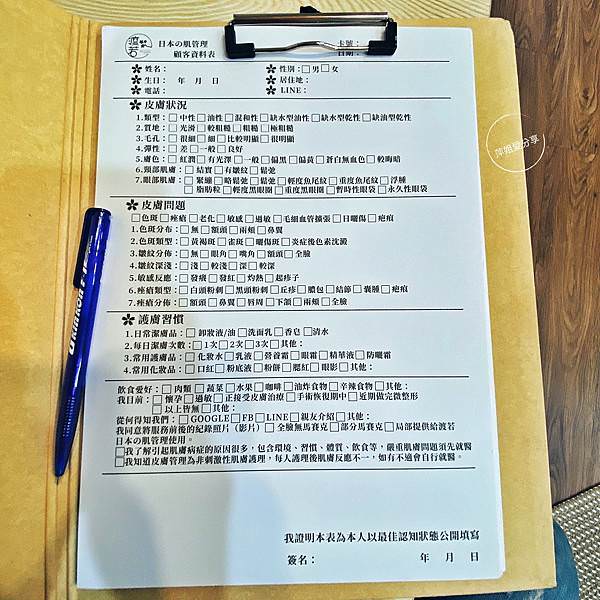 日本の肌管理
顧客資料表
卡號：
日期：
✽ 姓名：
✽ 性別：□男□女
✽ 生日：　年　月　日
✽ 居住地：
✽ 電話：
✽ LINE：
✽ 皮膚狀況
1.類型：□中性□油性□混和性□缺水型油性□缺水型乾性□缺油型乾性
2.質地：□光滑□較粗糙□粗糙□極粗糙
3.毛孔：□很細□細□比較明顯□很明顯
4.彈性：□差□一般□良好
5.膚色：□紅潤□有光澤□一般□偏黑□偏黃□蒼白無血色□較晦暗
6.頸部肌膚：□結實□有皺紋□鬆弛
7.眼部肌膚：□緊繃□略鬆弛□鬆弛□輕度魚尾紋□重度魚尾紋□浮腫
□脂肪粒□輕度黑眼圈□重度黑眼圈□暫時性眼袋□永久性眼袋
✽ 皮膚問題
□色斑□痤瘡□老化□敏感□過敏□毛細血管擴張□日曬傷□疤痕
1.色斑分布：□無□額頭□兩頰□鼻翼
2.色斑類型：□黃褐斑□雀斑□曬傷斑□炎症後色素沈澱
3.皺紋分佈：□無□眼角□嘴角□額頭□全臉
4.皺紋深淺：□淺□較淺□深□較深
5.敏感反應：□發癢□發紅□灼熱□起疹子
6.痤瘡類型：□白頭粉刺□黑頭粉刺□丘疹□膿包□結節□囊腫□疤痕
7.痤瘡分佈：□額頭□鼻翼□唇周□下頷□兩頰□全臉
✽ 護膚習慣
1.日常潔膚品：□卸妝液/油□洗面乳□香皂□清水
2.每日潔膚次數：□1次□2次□3次□其他：
3.常用護膚品：□化妝水□乳液□營養霜□眼霜□精華液□防曬霜
4.常用化妝品：□口紅□粉底液□粉餅□腮紅□眼影□其他：
飲食愛好：□肉類□蔬菜□水果□咖啡□油炸食物□辛辣食物□其他：
我目前：□懷孕□過敏□正接受皮膚治療□手術恢復期中□近期做完微整形
□以上皆無□其他：
從何得知我們：□GOOGLE□FB□LINE□親友介紹□其他：
我同意將服務前後的紀錄照片（影片）□全臉無馬賽克□部分馬賽克□局部提供給渡若
日本の肌管理使用。
□我了解引起肌膚病症的原因很多，包含環境、習慣、體質、飲食等，嚴重肌膚問題須先就醫
□我知道皮膚管理為非刺激性肌膚護理，每人護理後肌膚反應不一，如有不適會自行就醫。
我證明本表為本人以最佳認知狀態公開填寫
簽名：　年　月　日
萍姐愛分享